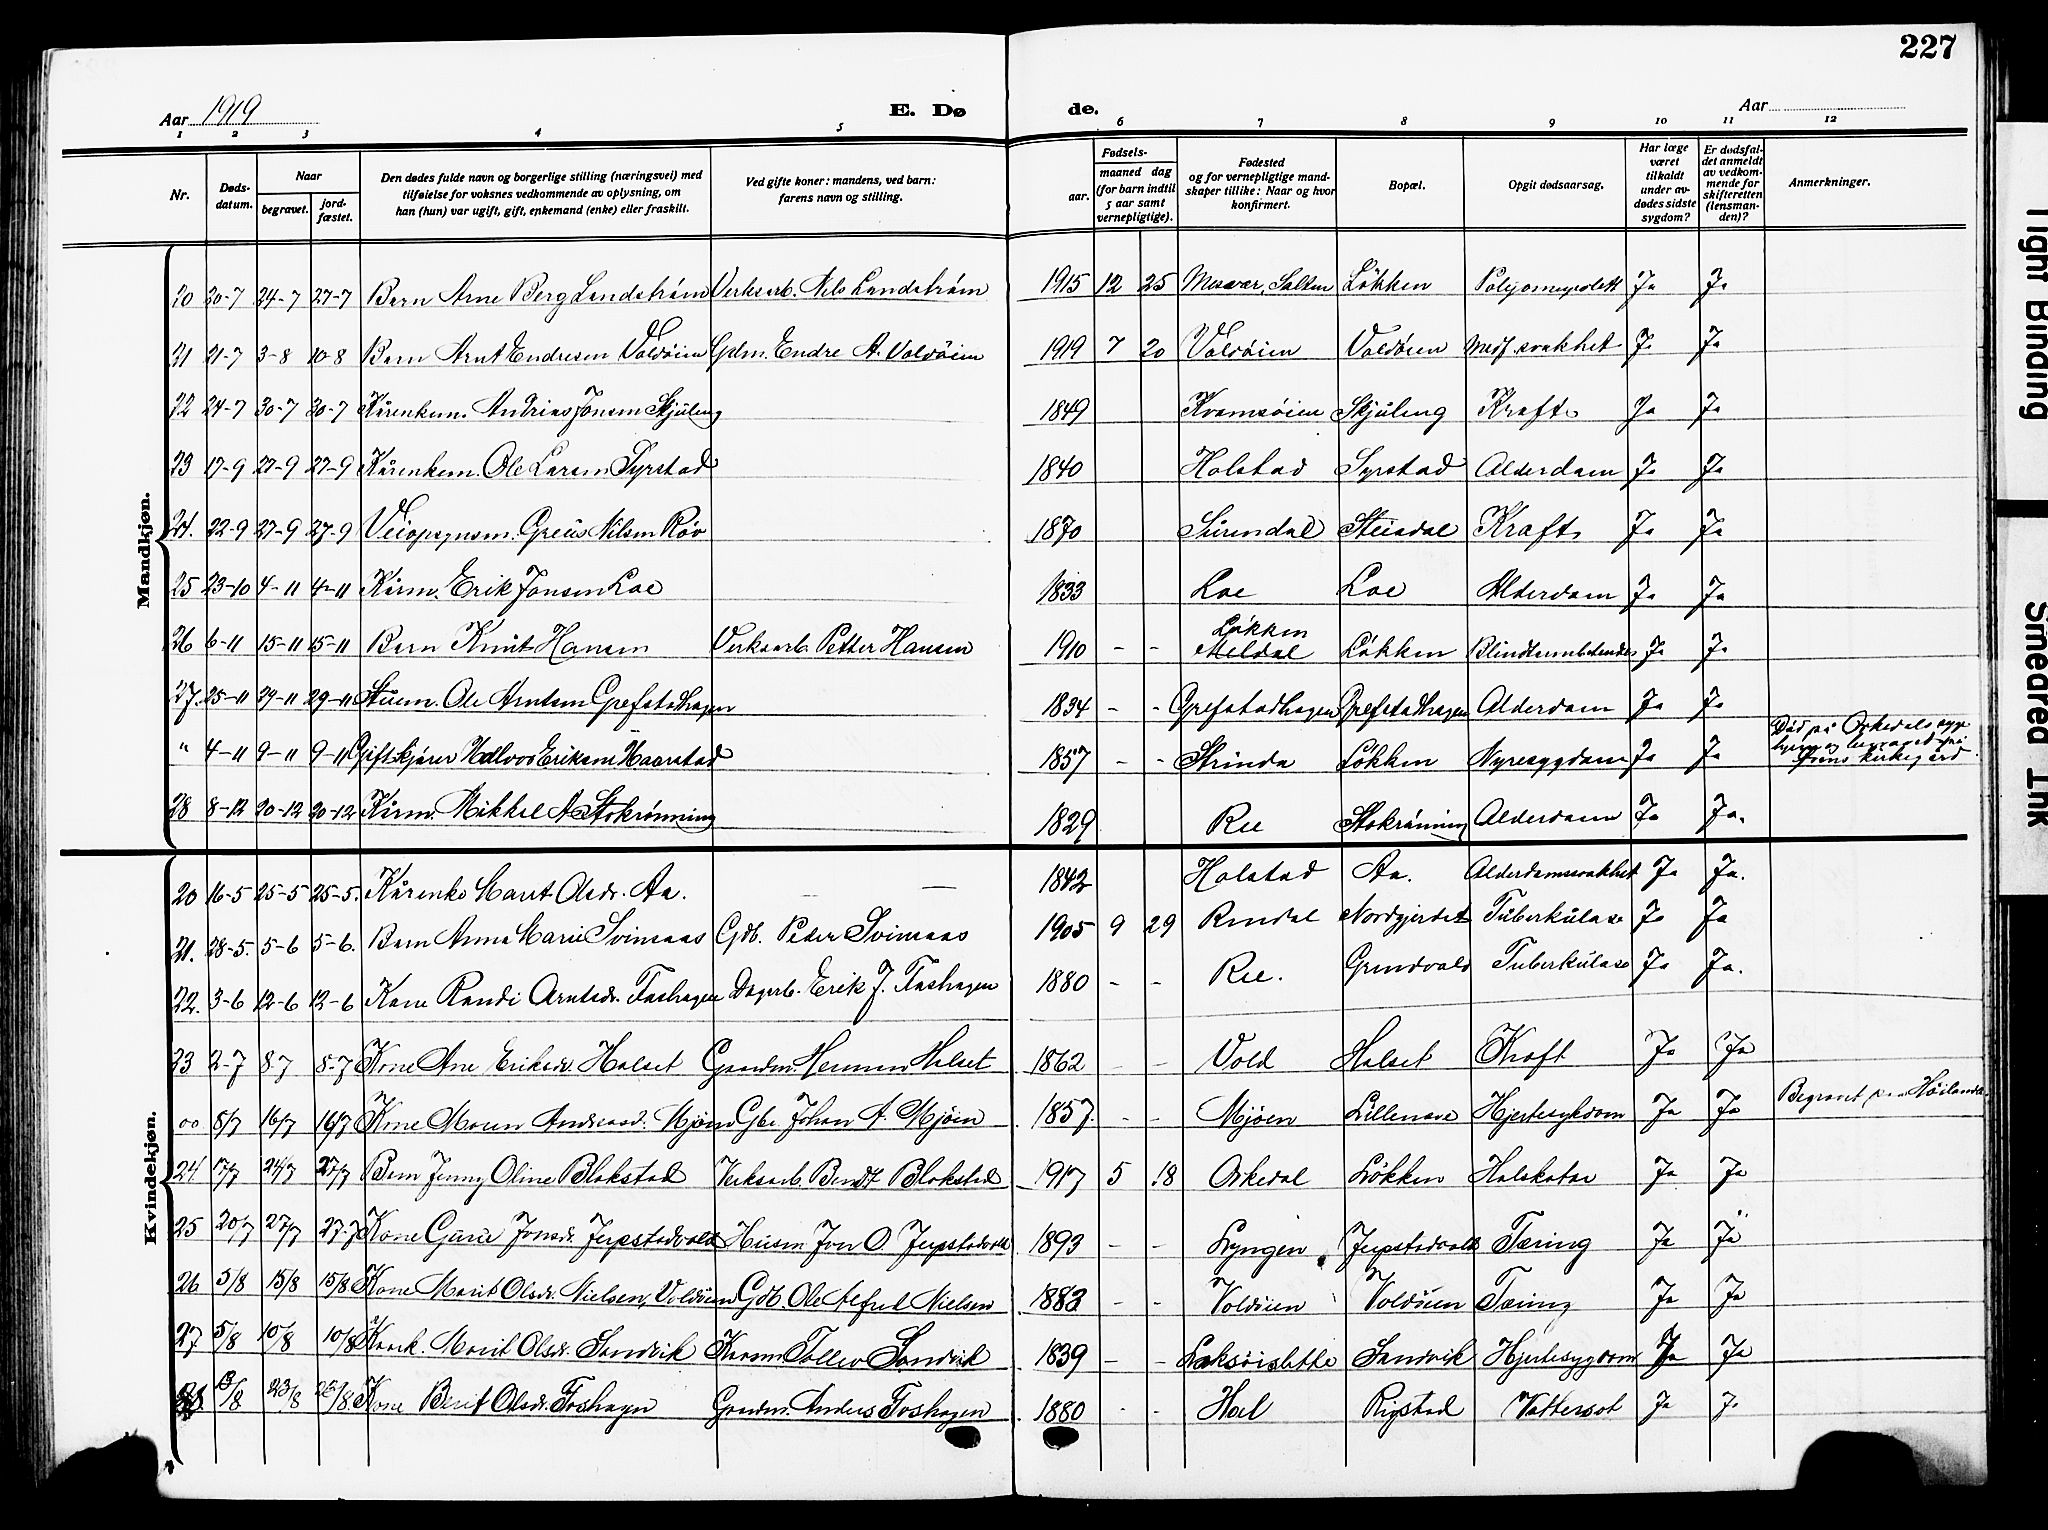 227
Aar 1919
E. Dø
de.
Aar
1 2 3 4 5 6 7 8 9 10 11 12
Nr.
Døds-
datum.
Naar
begravet.
jord-
fæstet.
Den dødes fulde navn og borgerlige stilling (næringsvei) med
tilføielse for voksnes vedkommende av oplysning, om
han (hun) var ugift, gift, enkemand (enke) eller fraskilt.
Ved gifte koner: mandens, ved barn:
farens navn og stilling.
Fødsels-
aar.
maaned dag
(for barn indtil
5 aar samt
vernepligtige).
Fødested
og for vernepligtige mand-
skaper tillike: Naar og hvor
konfirmert.
Bopæl.
Opgit dødsaarsag.
Har læge
været
tilkaldt
under av-
dødes sidste
sygdom?
Er dødsfal-
det anmeldt
av vedkom-
mende for
skifteretten
(lensman-
den)?
Anmerkninger.
Mandkjøn.
20 20-7 24-7 27-7 Barn Arne Berg Landstrøm Verksarb. Nils Landstrøm 1915 12 25 Salten Løkken Ja Ja
21 21-7 3-8 10-8 Barn Arnt Endresen Voldøien Gdm. Endre A. Voldøien 1919 7 20 Voldøien Voldøien Medf. svakhet Ja Ja
22 24-7 30-7 30-7 Kårenkem. Andrias Jonsen Skjuling 1849 Kvamsøien Skjuling Kræft Ja Ja
23 17-9 27-9 27-9 Kårenkem. Ole Larsen Syrstad 1840 Holstad Syrstad Alderdom Ja Ja
24. 22-9 27-9 27-9 Veiopsynsm. Nilsen Røv 1870 Surendal Kræft Ja Ja
25 23-10 4-11 4-11 Kårm. Erik Jonsen Loe 1833 Loe Loe Alderdom Ja Ja
26 6-11 15-11 15-11 Barn Knut Hansen Verksarb. Petter Hansen 1910 - - Løkken Meldal Løkken Blindtarmbetendes Ja Ja
27. 25-11 29-11 29-11 Ole Arntsen Grefstadhagen 1834 - - Grefstadhagen Grefstadhagen Alderdom Ja Ja
" 4-11 9-11 9-11 Gift kjører Halvor Eriksen Haarstad 1857 - - Strinda Løkken Nyresygdom Ja Ja Død på Orkedals syge-
hjem og begravet på
kirkegård
28 8-12 20-12 20-12 Kårm. Mikkel A. Stokrønning 1829 Ree Stokrønning Alderdom Ja Ja.
Kvindekjøn.
20 16-5 25-5 25-5. Kårenke Marit Olsdr. Aa. — — 1842 Holstad Aa. Alderdomsvakhet Ja Ja.
21. 28-5. 5-6 5-6. Barn Anna Marie Svinsaas Gdb. Peder Svinsaas 1905 9 29 Rindal Nordgjerdet Tuberkulose Ja Ja
22. 3-6 12-6 12-6 Kone Randi Arntsdr. Foshagen Dagarb. Erik J. Foshagen 1880 - - Ree. Grindvold Tuberkulose Ja Ja.
23 2-7 8-7 8-7 Kone Ane Eriksdr. Halset Gaardm. Halset 1862 - - Vold Halset Kræft Ja Ja
oo 8/7 16/7 16/7 Kone Andreasd. Mjøen Gbr. Johan A. Mjøen 1857. - - Mjøen Hjertesykdom Ja Ja Begravet paa Høilandet
24 17/7 24/7 27/7 Barn Jenny Oline Blokstad Verksarb. Berndt Blokstad 1917 5 18 Orkedal Løkken Halskatar Ja Ja
25 20/7 27/7 27-7 Kone Guru Jonsdr. Jerpstadvold Husm Jon O. Jerpstadvold 1893 - - Lyngen Jerpstadvold Tæring Ja Ja
26 5/8 15/8 15/8 Kone Marit Olsdr. Nielsen, Voldøien Gdb. Ole Alfred Nielsen 1883 - - Voldøien Voldøien Tæring Ja Ja
27 5/8 10/8 10/8 Kaark. Marit Olsdr. Sandvik Kaarm Tollev Sandvik 1839 - - Laksøisletta Sandvik Hjertesygdom Ja Ja
28 13/8 23/8 Kone Berit Olsdr. Foshagen Gaardm. Anders Foshagen 1880 - - Hoel Rigstad Vattersot Ja Ja
Tight Binding
Smeared Ink